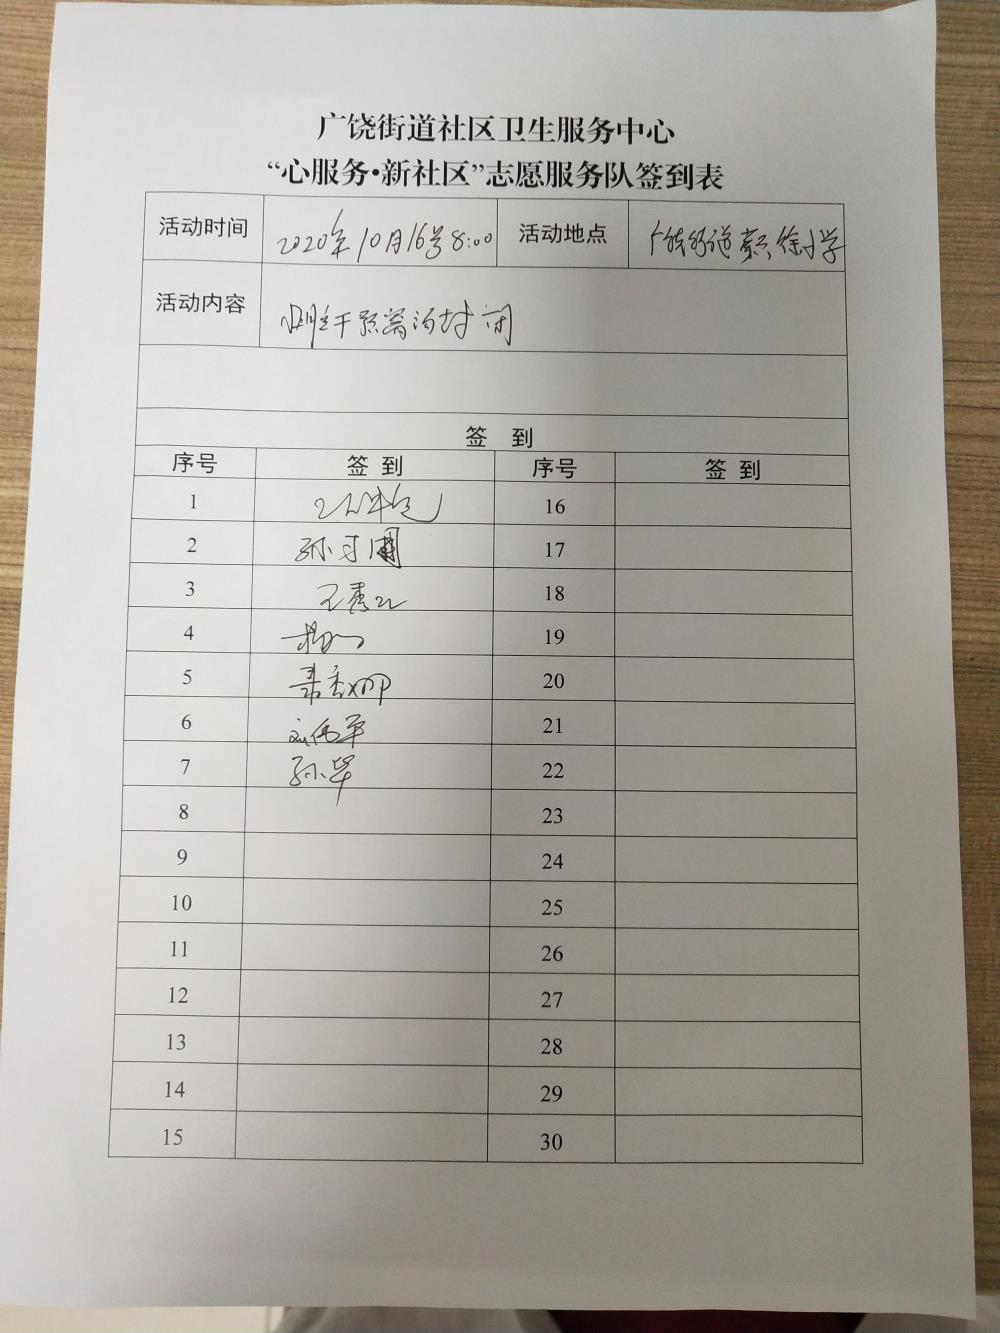 广饶街道社区卫生服务中心
“心服务•新社区”志愿服务队签到表
活动时间 2020年10月16号8:00 活动地点 广饶街道 徐小学
活动内容 干预窝沟封闭
签 到
序号 签 到 序号 签 到
1 16
2 孙 17
3 王秀 18
4 19
5 20
6 刘伟军 21
7 孙华 22
8 23
9 24
10 25
11 26
12 27
13 28
14 29
15 30